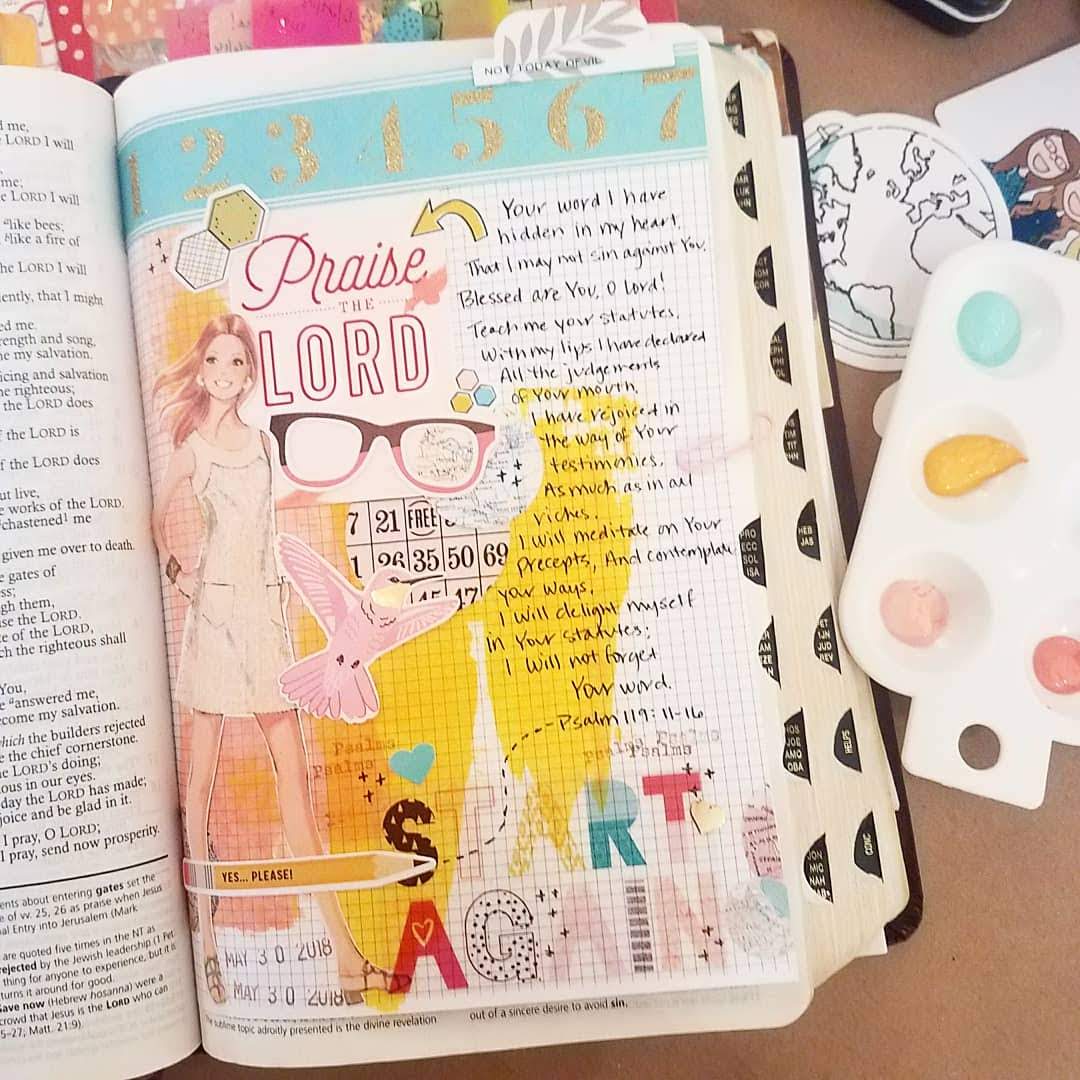 NOT TODAY DEVIL
1 2 3 4 5 6 7
Praise
THE
LORD
Your word I have
hidden in my heart.
That I may not sin against You.
Blessed are You, O Lord!
Teach me your statutes.
With my lips I have declared
All the judgements
of Your mouth.
I have rejoiced in
the way of Your
testimonies.
As much as in all
riches.
I will meditate on Your
Precepts, And contemplate
your ways.
I will delight myself
in Your statutes;
I will not forget
Your word.
-Psalm 119:11-16
7 21 FREE
1 26 35 50 69
45 47
Psalms
Psalms
Psalms Psalms
Psalms
START
YES... PLEASE!
AGAIN
MAY 30 2018
MAY 30 2018
sublime topic adroitly presented is the divine revelation
out of a sincere desire to avoid sin.
d me,
e LORD I will
me;
e LORD I will
like bees;
like a fire of
he LORD I will
ently, that I might
ed me.
rength and song,
e my salvation.
icing and salvation
he righteous;
the LORD does
f the LORD is
f the LORD does
ut live,
e works of the LORD.
chastened me
given me over to death.
e gates of
ss;
gh them,
ise the LORD.
te of the LORD,
ch the righteous shall
You,
answered me,
ecome my salvation.
which the builders rejected
e the chief cornerstone.
e LORD's doing;
ous in our eyes.
day the LORD has made;
joice and be glad in it.
I pray, O LORD;
I pray, send now prosperity.
ents about entering gates set the
e of vv. 25, 26 as praise when Jesus
al Entry into Jerusalem (Mark
are quoted five times in the NT as
rejected by the Jewish leadership (1 Pet.
thing for anyone to experience, but it is
turns it around for good.
Save now (Hebrew hosanna) were a
crowd that Jesus is the LORD who can
5–27; Matt. 21:9).
LUK
ROM
COR
EPH
PHI
COL
TIM
TIT
PHN
PRO
ECC
SOL
ISA
HEB
JAS
JUD
REV
HOS
JOE
AMO
OBA
HELPS
JON
MIC
NAH
CONC